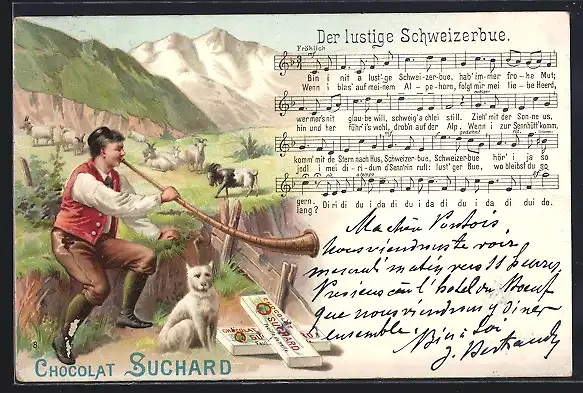 Der lustige Schweizerbue.
Fröhlich
Bin i nit a lust-ge Schwei-zer-bue, hab' im-mer fro-he Mut;
Wenn i blas' auf mei-nem Al-pe-horn, folgt mir mei lie-be Heerd,
wer mor's nit glau-be will, schweig' a chlei still. Zieh' mit der Son-ne us,
hin und her führ' i's wohl, drob'n auf der Alp. Wenn i zur Sennhütt' komm,
komm' mit de Stern nach Hus, Schweizer-bue, Schweizerbue hör' i ja so
jodl i mei di-ri-dum d'Senn'rin ruft: lust'ger Bue, wo bleibst du so
a tempo
gern.
lang? Di ri di du i da di du i da di du i da di dui do.
Ma chère
nous viendrons te voir
mercredi matin vers 11 heures
l'hôtel du Boeuf
que nous viendrons y diner
ensemble.
J. Bertrand
CHOCOLAT
SUCHARD
8.
CHOCOLAT SUCHARD